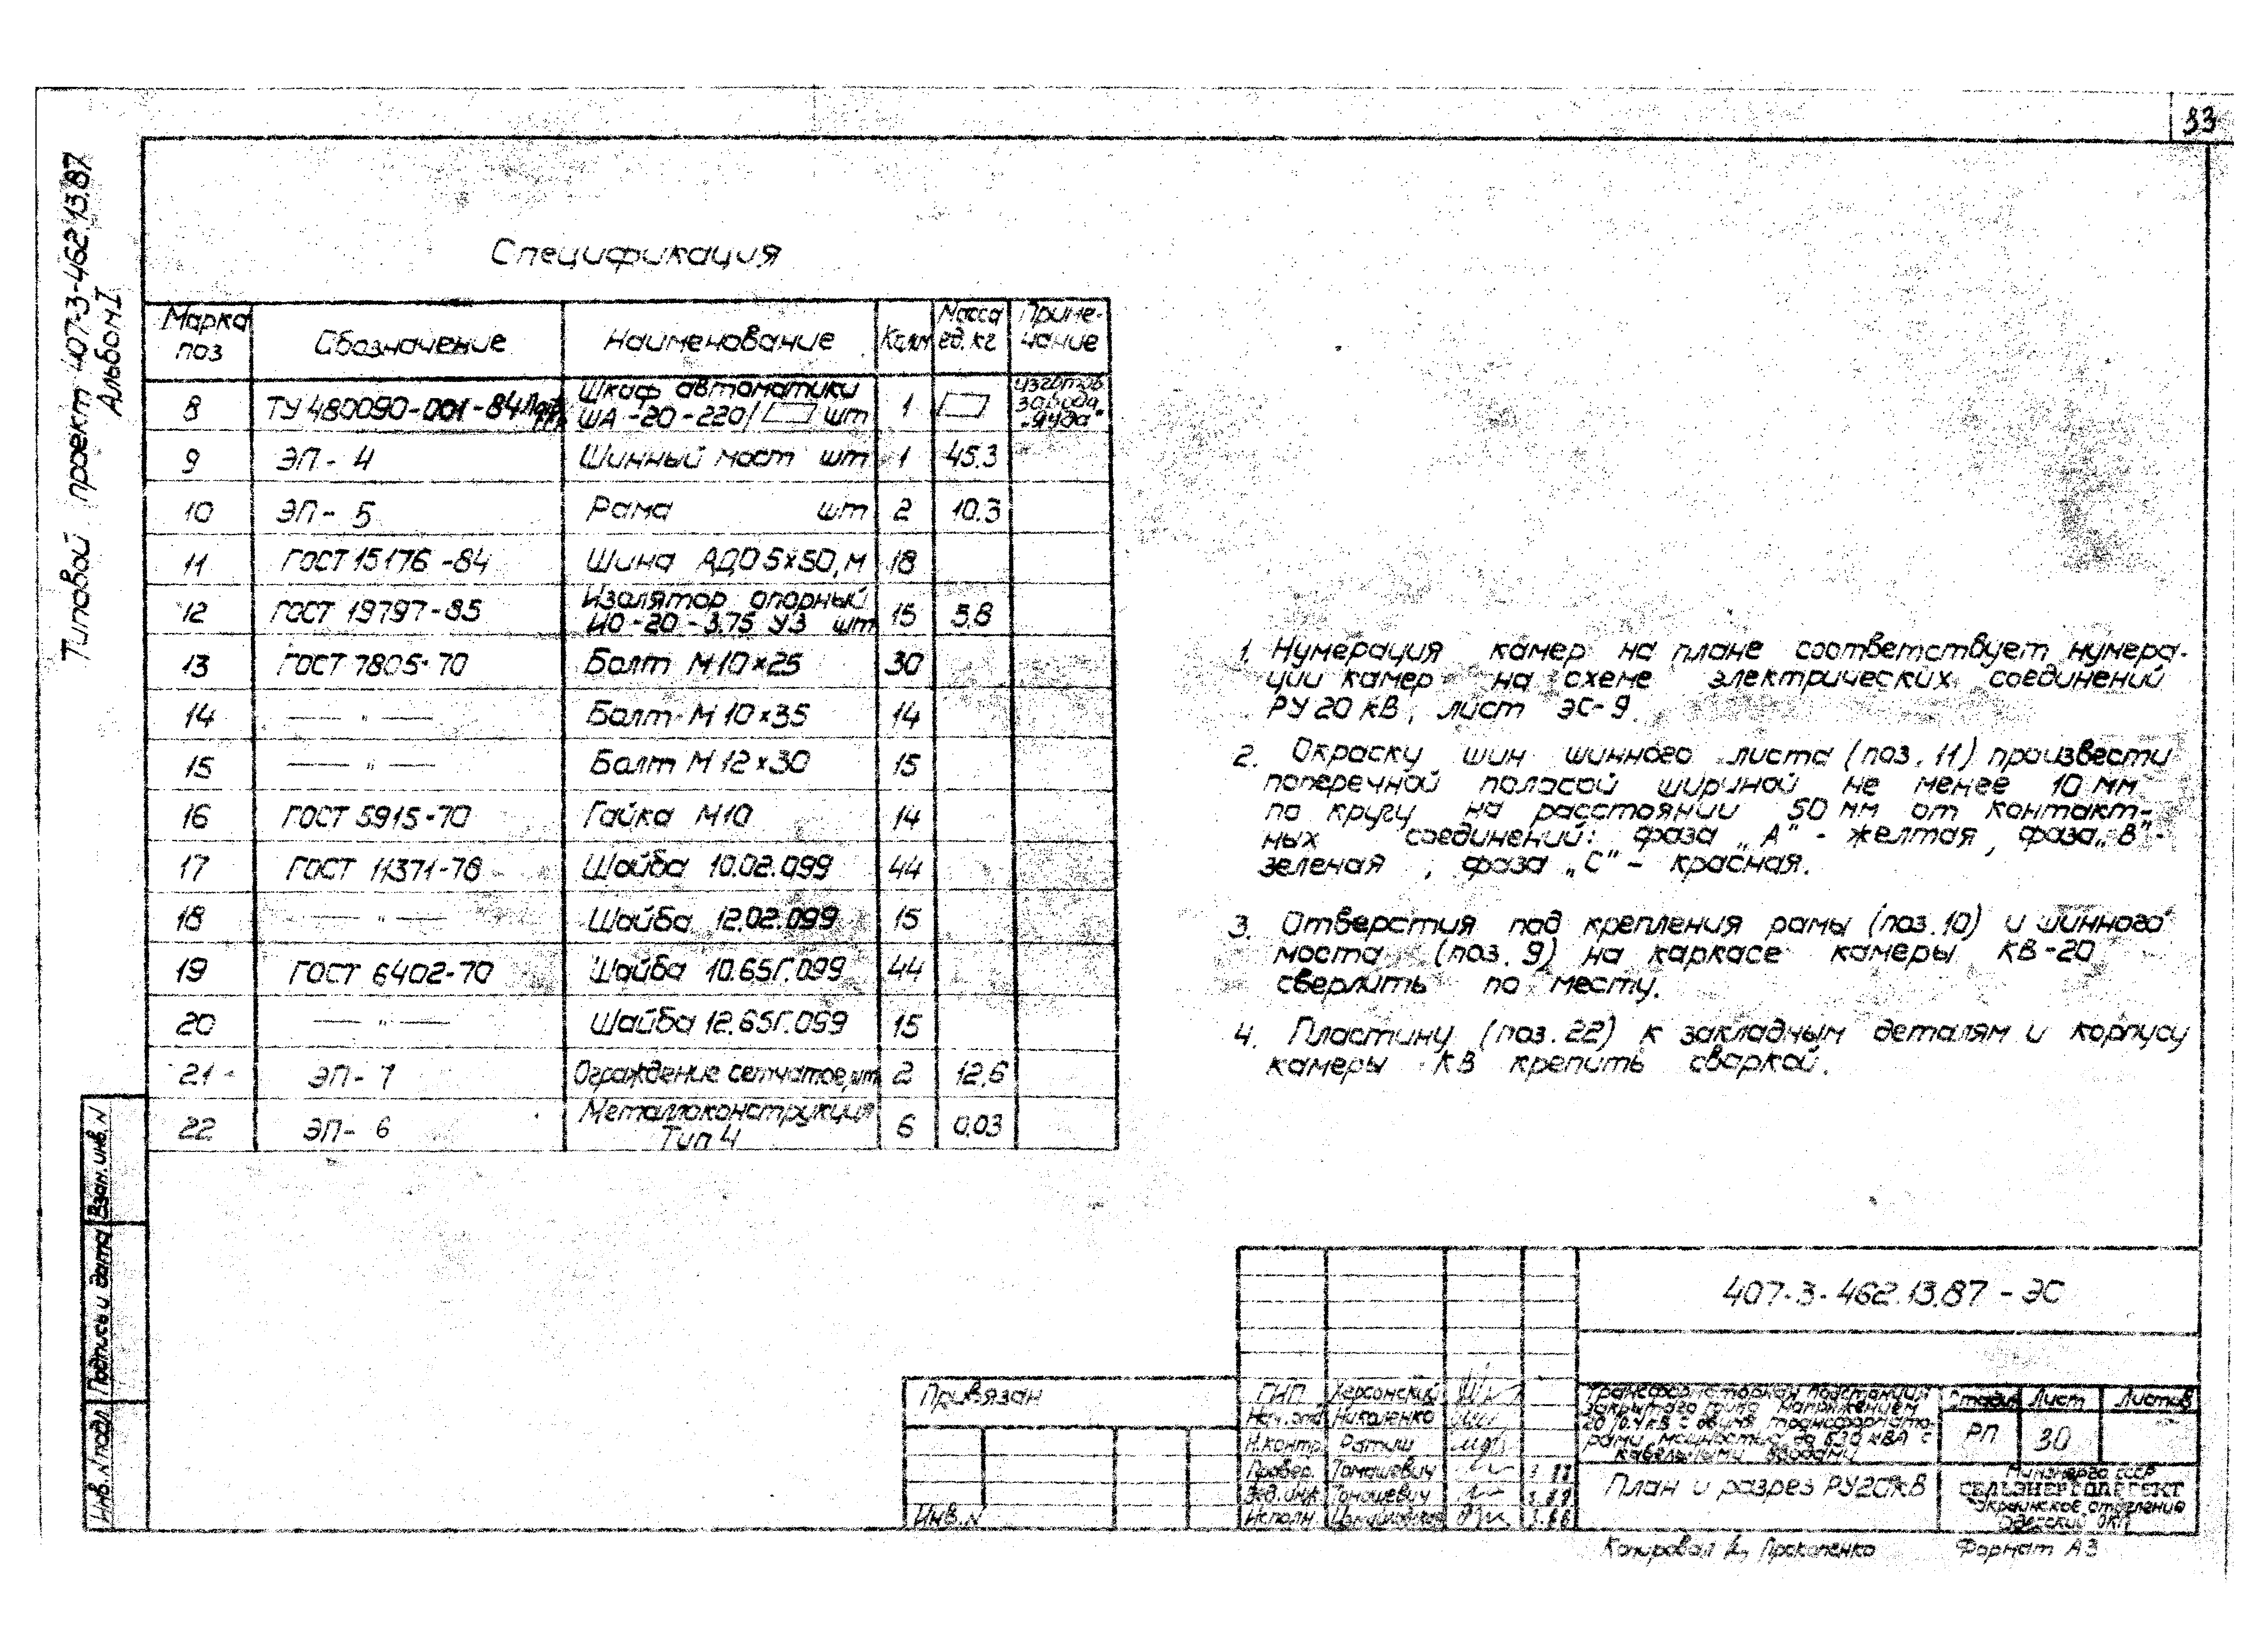 33
Типовой проект 407-3-462.13.87
Альбом I
Спецификация
Марка поз Обозначение Наименование Кол. Масса ед. кг Примечание
8 ТУ 480090-001-84 Шкаф автоматики ША-20-220/ шт 1 изготов. завода
9 ЭП-4 Шинный мост шт 1 45.3
10 ЭП-5 Рама шт 2 10.3
11 ГОСТ 15176-84 Шина АДО 5х50, м 18
12 ГОСТ 19797-85 Изолятор опорный ИО-20-3.75 У3 шт 15 5,8
13 ГОСТ 7805-70 Болт М10х25 30
14 — " — Болт М10х35 14
15 — " — Болт М12х30 15
16 ГОСТ 5915-70 Гайка М10 14
17 ГОСТ 11371-78 Шайба 10.02.099 44
18 — " — Шайба 12.02.099 15
19 ГОСТ 6402-70 Шайба 10.65Г.099 44
20 — " — Шайба 12.65Г.099 15
21 ЭП-7 Ограждение сетчатое, шт 2 12,6
22 ЭП-6 Металлоконструкция Тип 4 6 0,03
1. Нумерация камер на плане соответствует нумера-
ции камер на схеме электрических соединений
РУ 20 кВ, лист ЭС-9.
2. Окраску шин шинного листа (поз. 11) произвести
поперечной полосой шириной не менее 10 мм
по кругу на расстоянии 50 мм от контакт-
ных соединений: фаза „А" - желтая, фаза „В"-
зеленая, фаза „С" - красная.
3. Отверстия под крепления рамы (поз. 10) и шинного
моста (поз. 9) на каркасе камеры КВ-20
сверлить по месту.
4. Пластину (поз. 22) к закладным деталям и корпусу
камеры КВ крепить сваркой.
Взам. инв. N
Подпись и дата
Инв. N подл
Привязан
Инв. N
407-3-462.13.87 - ЭС
ГИП Херсонский
Нач. отд Николенко
Н.контр. Ратиш
Провер. Томашевич
Вед. инж Томашевич
Исполн.
Трансформаторная подстанция
закрытого типа напряжением
20/0,4 кВ с двумя трансформато-
рами мощностью до 630 кВА с
кабельными вводами
Стадия Лист Листов
РП 30
План и разрез РУ20кВ
Минэнерго СССР
СЕЛЬЭНЕРГОПРОЕКТ
Украинское отделение
Одесский ОКП
Копировал Прокопенко
Формат А3